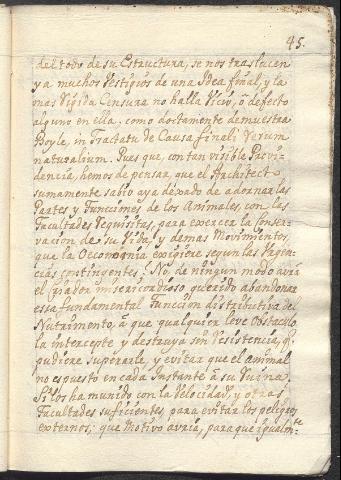 45.
del todo de su Estructura, se nos traslucen
ya muchos Vestigios de una Idea final, y la
mas Rigida Censura no halla Vicio, o defecto
alguno en ella: como doctamente demuestra
Boyle, in Tractatu de Causa finali Rerum
naturalium. Pues que, con tan visible Provi-
dencia, hemos de pensar, que el Architecto
sumamente sabio aya dexado de adornar las
Partes y Funciones de los Animales, con las
Facultades Requisitas, para exercer la Conser-
vacion de su Vida, y demas Movimientos,
que la Oeconomia exigiere segun las Urgen-
cias contingentes? No, de ningun modo avrà
el Criador misericordioso querido abandonar
essa fundamental Funcion distributiva del
Nutrimento, à que qualquier leve Obstaculo
la intercepte y destruya sin Resistencia, q.
pudiere superarle, y evitar que el animal
no espuesto en cada Instante à su Ruina.
Si los ha munido con la Velocidad, y otras
Facultades suficientes, para evitar los peligros
externos; que Motivo avria, para que igualmte.